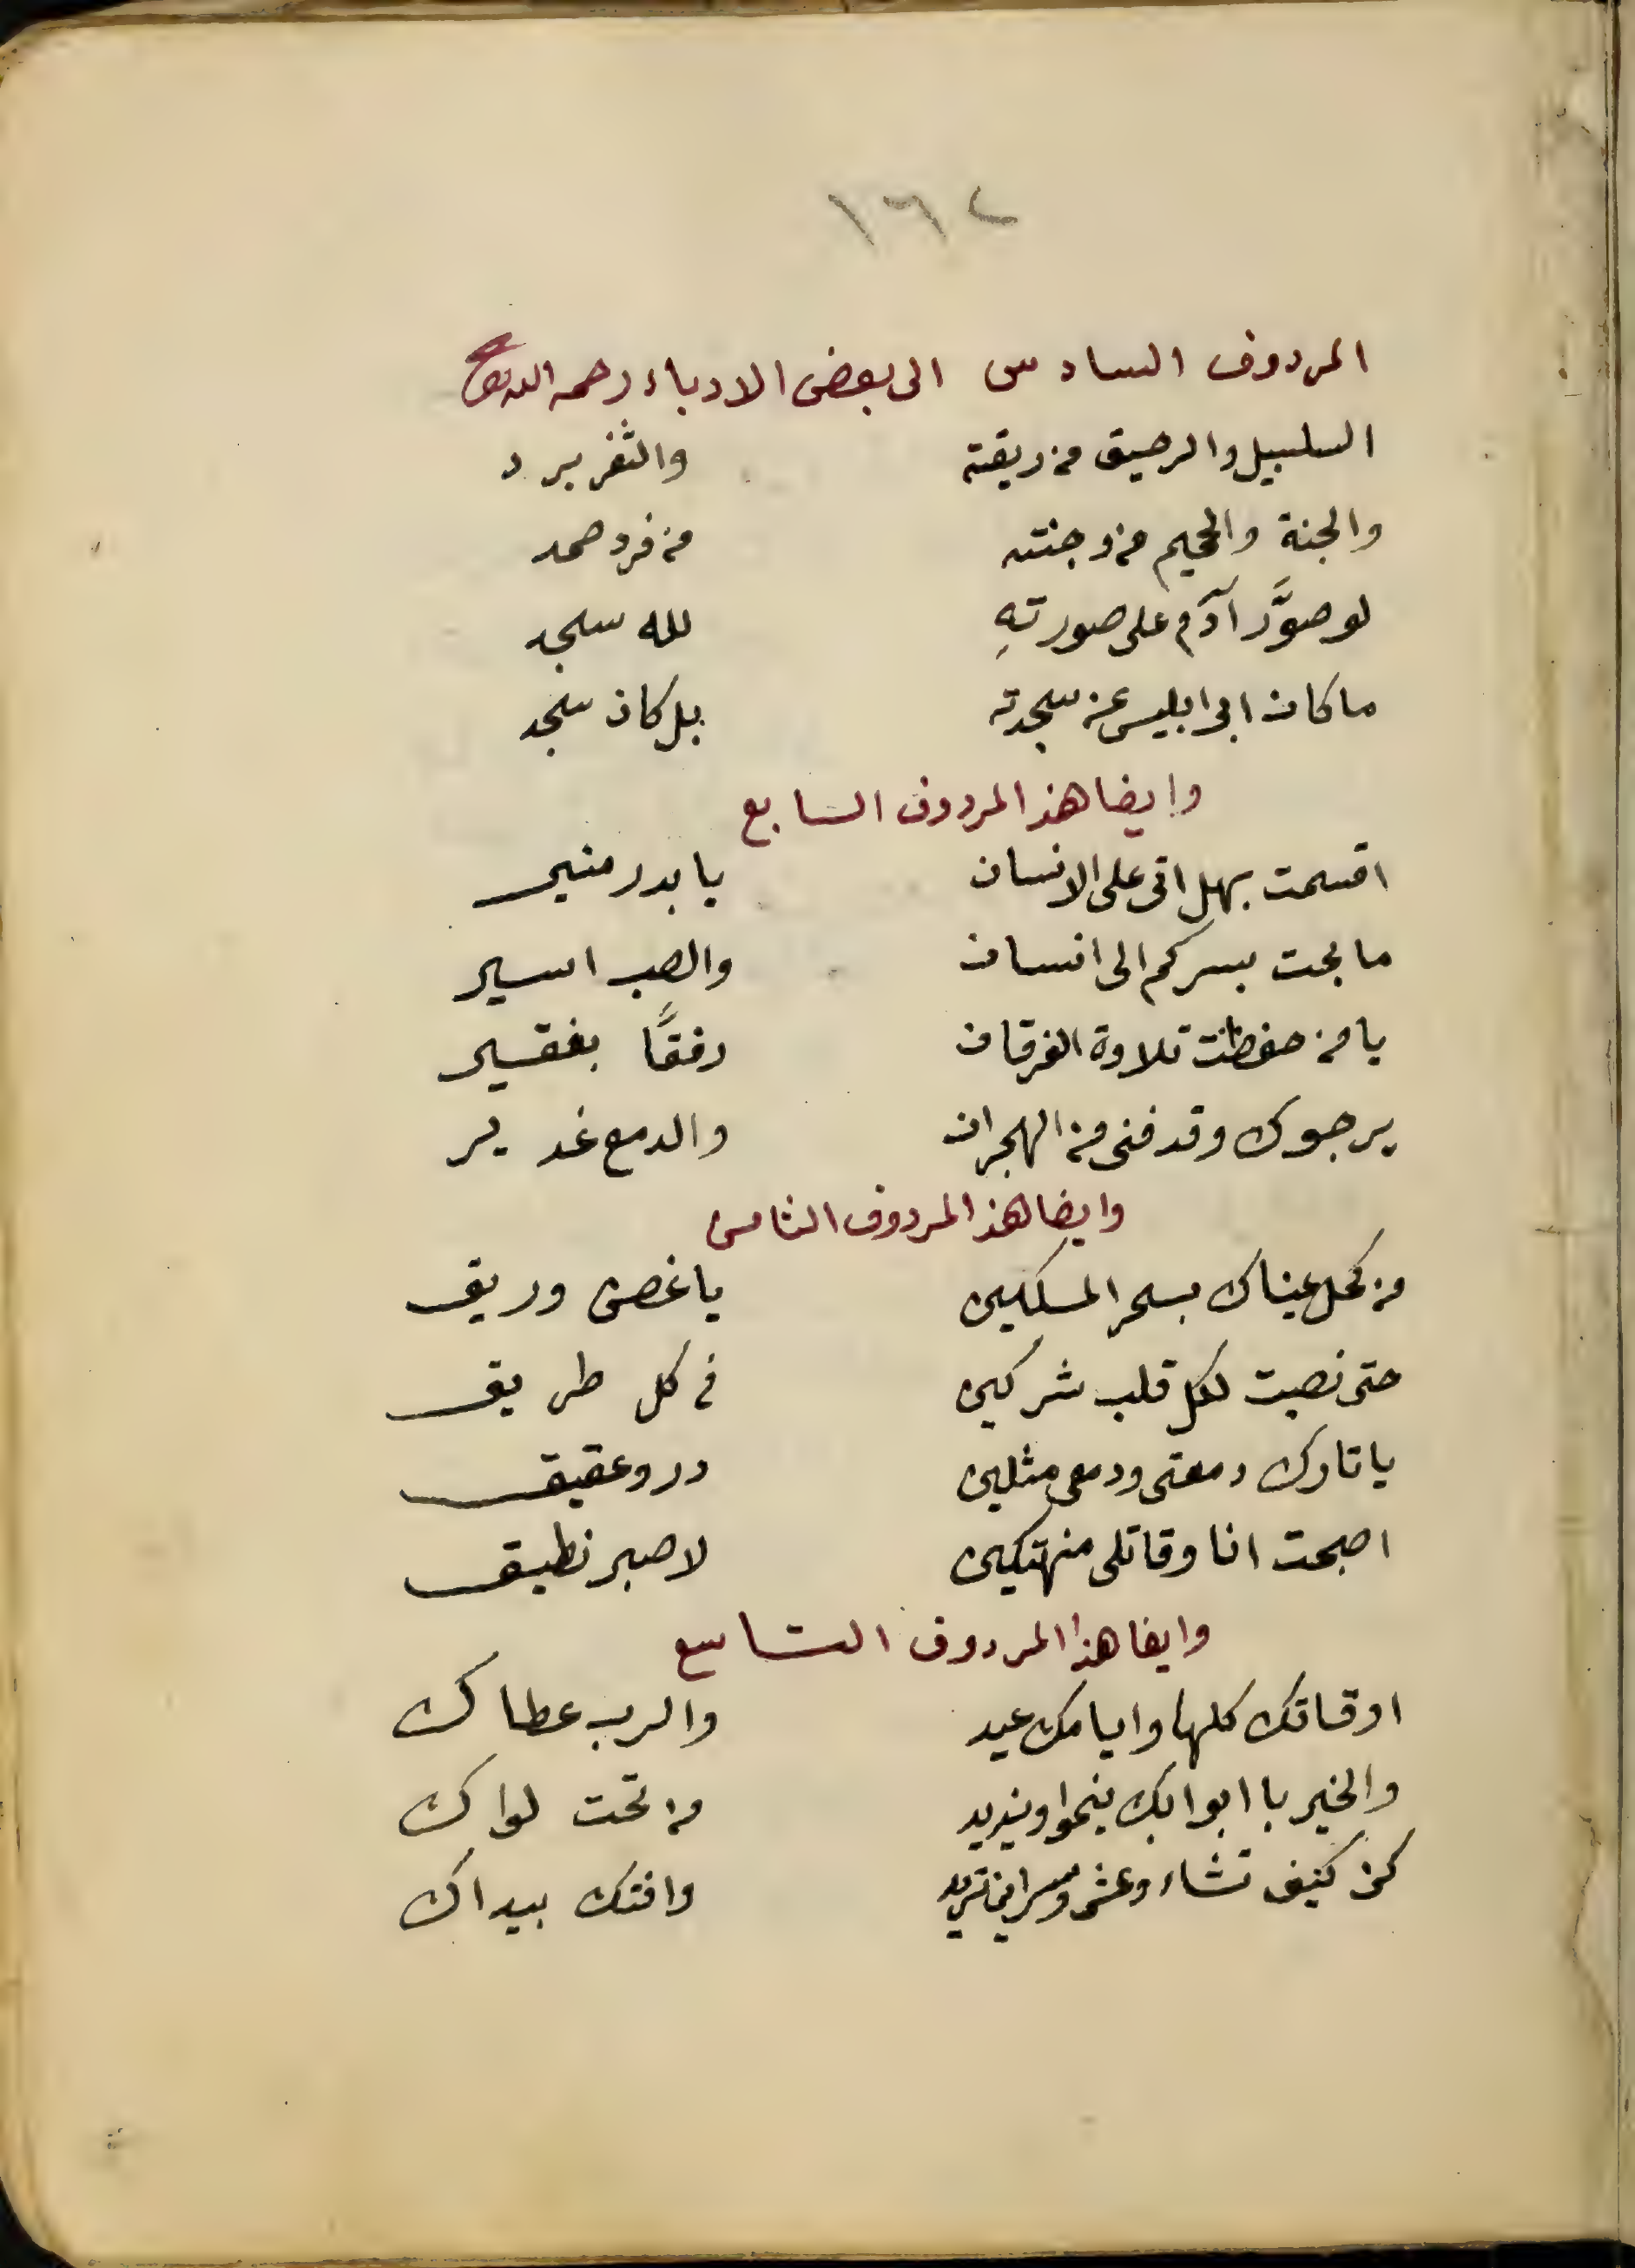 ١٦٢
المردوف السادس الى بعض الادباء رحمه الله تع
السلسبيل والرحيق من ريقته والثغر برد
والجنة والجحيم من وجنته من فرد صمد
لو صوَّر آدم على صورتهِ لله سجد
ما كان ابى ابليس عن سجدته بل كان سجد
وايضا هذ المردوف السابع
اقسمت بهل اتى على الانسان يا بدر منير
ما بحت بسركم الى انسان والصب اسير
يا من حفظت تلاوة الفرقان رفقًا بفقير
يرجوك وقد فنى من الهجران والدمع غدير
وايضا هذ المردوف الثامن
من كحل عيناك بسحر المسكين يا غصن وريق
حتى نصبت لكل قلب شركين في كل طريق
يا تارك دمعتى ودمعى مثلين در وعقيق
اصبحت انا وقاتلى منهتكين لا صبر نطيق
وايضا هذا المردوف التاسع
اوقاتك كلها وايامك عيد والرب عطاك
والخير با ابوابك ينموا ويزيد من تحت لواك
كن كيف تشاء وعش وسر اين تريد وافتك بيداك